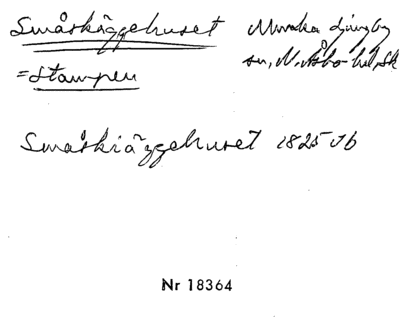 Småskäggehuset Munka Ljungby
=Stampen sn, N. Åsbo hd, Sk
Småskiäggehuset 1825 Jb
Nr 18364